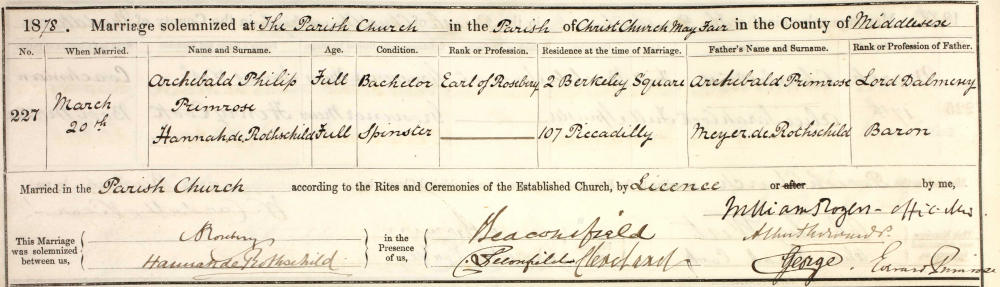 1878. Marriage solemnized at The Parish Church in the Parish of Christ Church May Fair in the County of Middlesex
No. When Married. Name and Surname. Age. Condition. Rank or Profession. Residence at the time of Marriage. Father's Name and Surname. Rank or Profession of Father.
227 March 20th Archebald Philip Primrose Full Bachelor Earl of Rosebery 2 Berkeley Square Archebald Primrose Lord Dalmeny
Hannah, de, Rothschild Full Spinster 107 Piccadilly Meyer. de. Rothschild Baron
Married in the Parish Church according to the Rites and Ceremonies of the Established Church, by Licence or after by me,
William Rogers
This Marriage was solemnized between us,
A Rosebery
Hannah de Rothschild
in the Presence of us,
Beaconsfield
Leconfield Cleveland
George. Edward Primrose